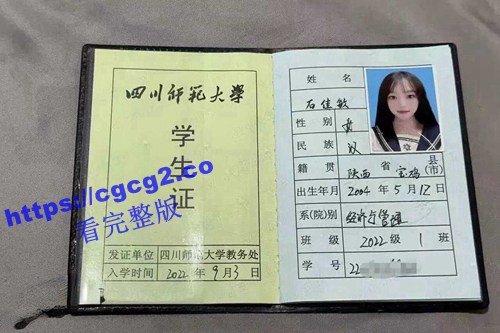 四川师范大学
学生证
https://cgcg2.co
看完整版
发证单位 四川师范大学教务处
入学时间 2022年9月3日
姓名 石佳敏
性别
民族 汉
籍贯 陕西 省 宝鸡 县(市)
出生年月 2004年5月12日
系(院)别 经济与管理
班级 2022级1班
学号 22